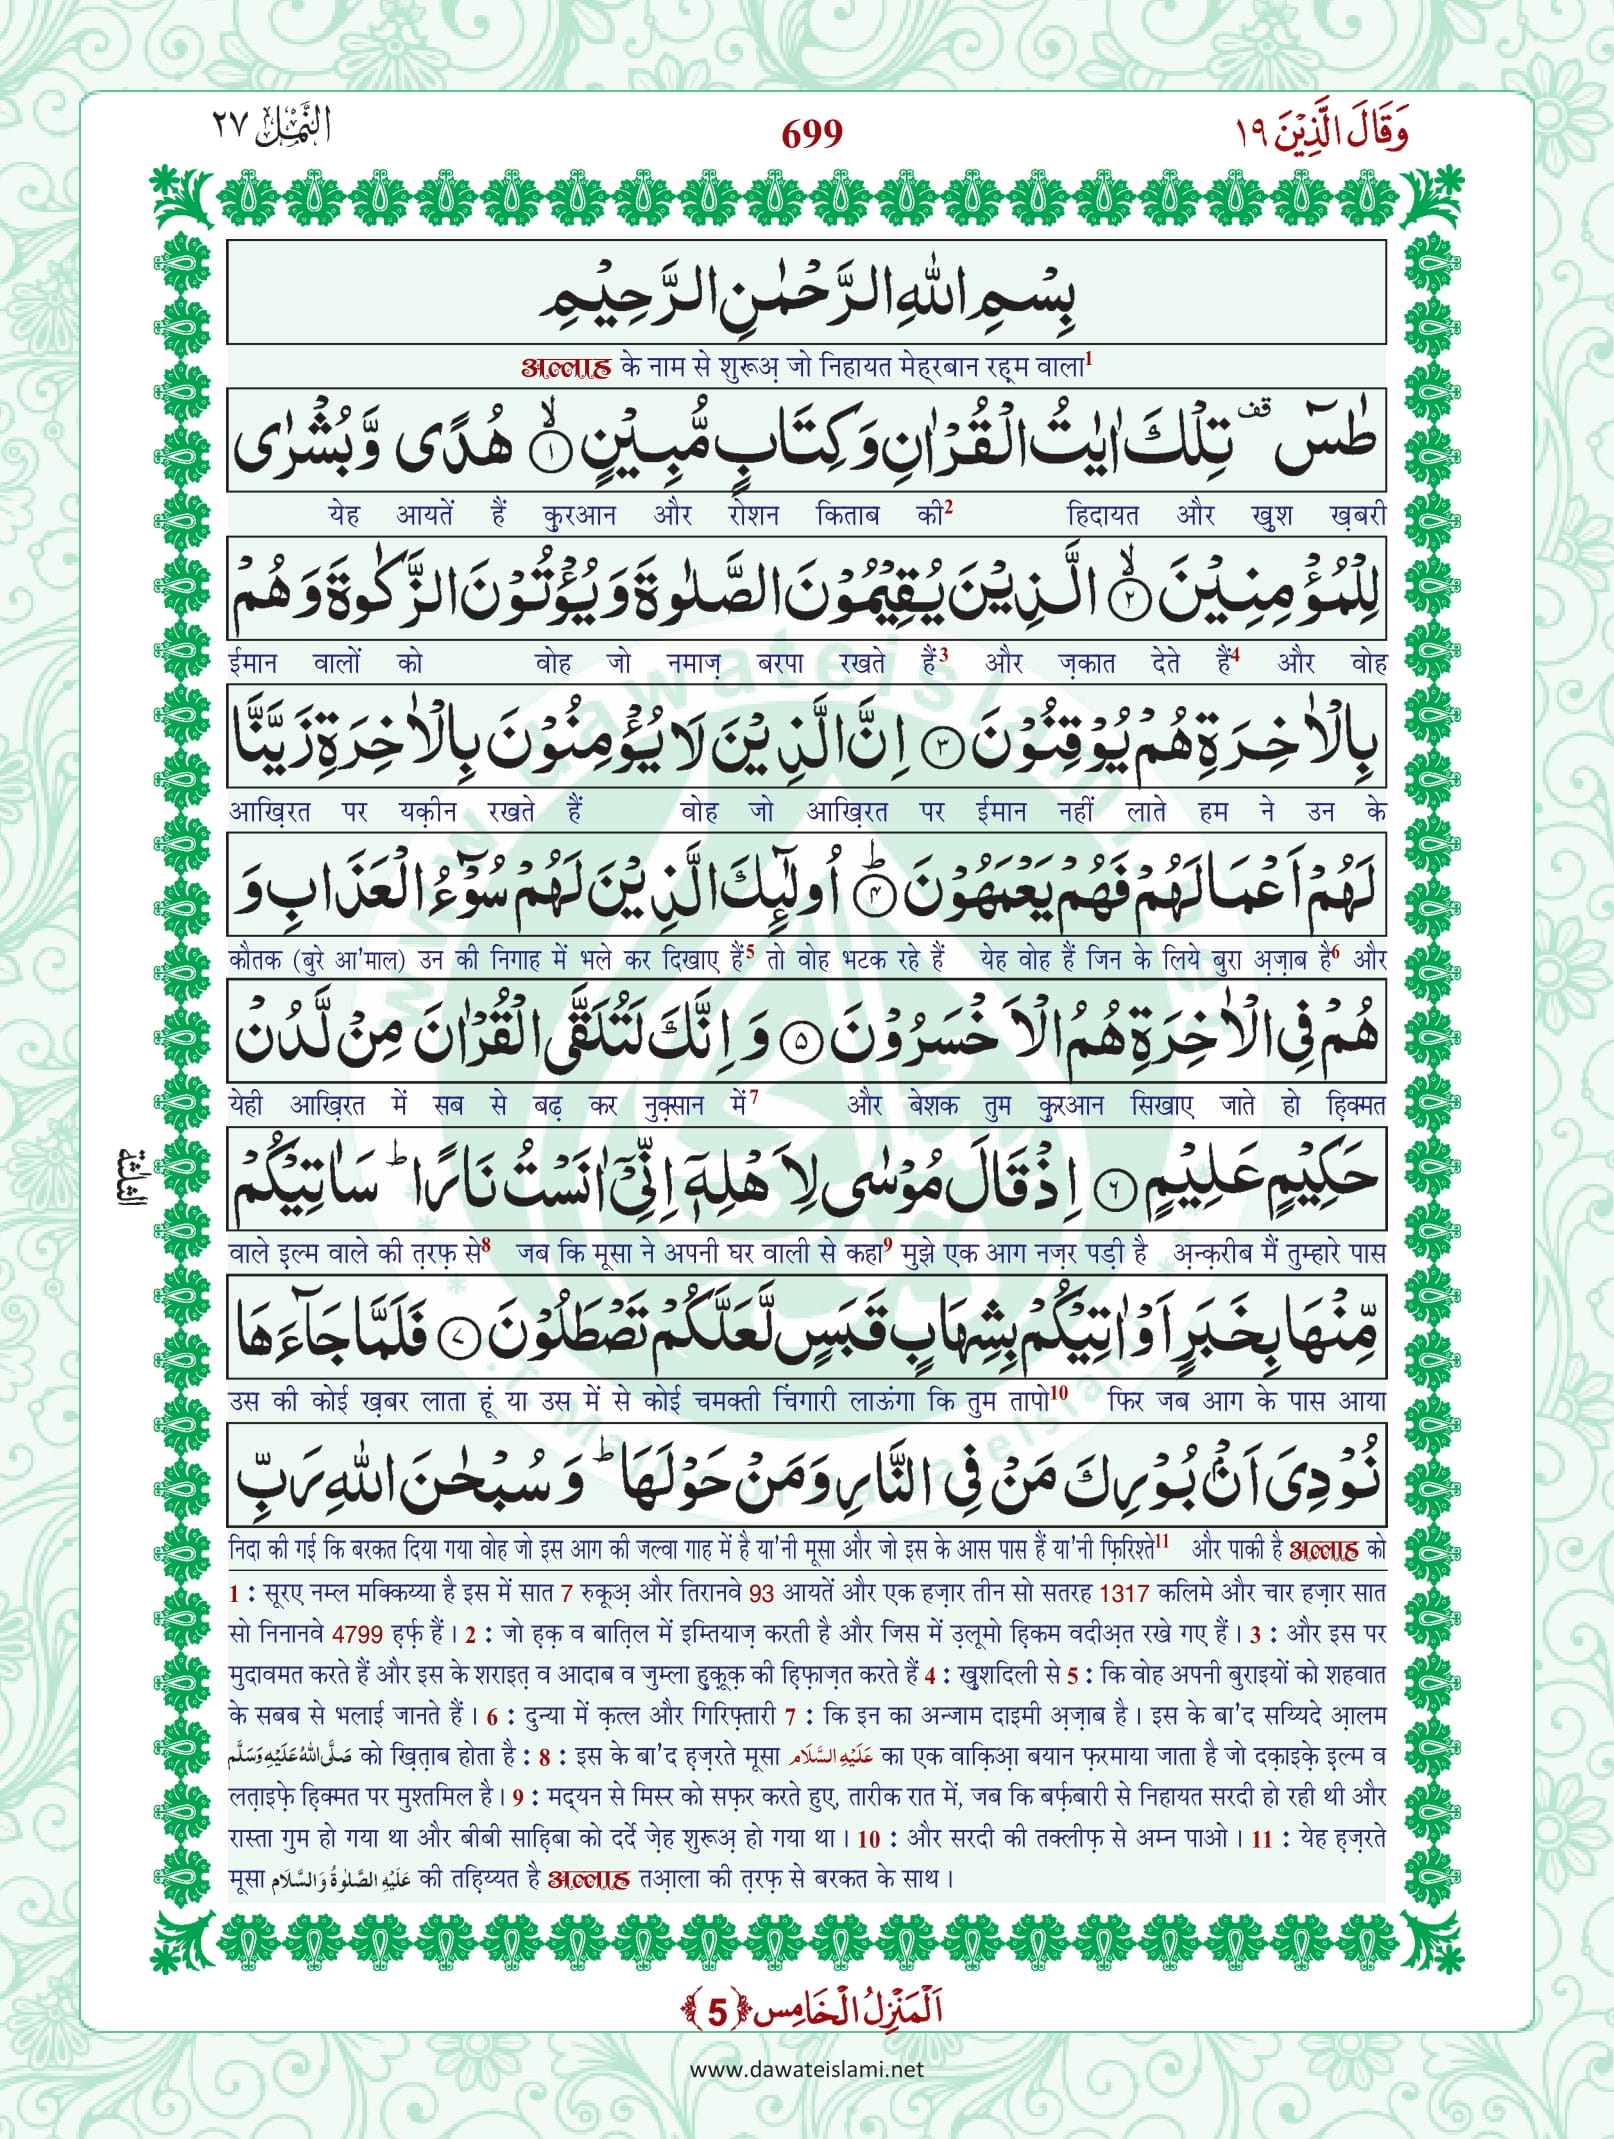 النَّمْل ٢٧
699
وَقَالَ الَّذِيْنَ ١٩
بِسْمِ اللّٰهِ الرَّحْمٰنِ الرَّحِيْمِ
अल्लाह के नाम से शुरूअ़ जो निहायत मेह्‌रबान रह़्म वाला1
طٰسٓ ۫ تِلْكَ اٰيٰتُ الْقُرْاٰنِ وَ كِتَابٍ مُّبِيْنٍۙ۝۱ هُدًى وَّ بُشْرٰى
येह आयतें हैं क़ुरआन और रोशन किताब की2 हिदायत और खुश ख़बरी
لِلْمُؤْمِنِيْنَۙ۝۲ الَّذِيْنَ يُقِيْمُوْنَ الصَّلٰوةَ وَ يُؤْتُوْنَ الزَّكٰوةَ وَ هُمْ
ईमान वालों को वोह जो नमाज़ बरपा रखते हैं3 और ज़कात देते हैं4 और वोह
بِالْاٰخِرَةِ هُمْ يُوْقِنُوْنَ۝۳ اِنَّ الَّذِيْنَ لَا يُؤْمِنُوْنَ بِالْاٰخِرَةِ زَيَّنَّا
आख़िरत पर यक़ीन रखते हैं वोह जो आख़िरत पर ईमान नहीं लाते हम ने उन के
لَهُمْ اَعْمَالَهُمْ فَهُمْ يَعْمَهُوْنَؕ۝۴ اُولٰٓىِٕكَ الَّذِيْنَ لَهُمْ سُوْٓءُ الْعَذَابِ وَ
कौतक (बुरे आ'माल) उन की निगाह में भले कर दिखाए हैं5 तो वोह भटक रहे हैं येह वोह हैं जिन के लिये बुरा अ़ज़ाब है6 और
هُمْ فِی الْاٰخِرَةِ هُمُ الْاَخْسَرُوْنَ۝۵ وَ اِنَّكَ لَتُلَقَّى الْقُرْاٰنَ مِنْ لَّدُنْ
येही आख़िरत में सब से बढ़ कर नुक़्सान में7 और बेशक तुम क़ुरआन सिखाए जाते हो ह़िक्मत
حَكِيْمٍ عَلِيْمٍ۝۶ اِذْ قَالَ مُوْسٰى لِاَهْلِهٖۤ اِنِّیْۤ اٰنَسْتُ نَارًاؕ سَاٰتِيْكُمْ
الثلٰثة
वाले इल्म वाले की त़रफ़ से8 जब कि मूसा ने अपनी घर वाली से कहा9 मुझे एक आग नज़र पड़ी है अ़न्क़रीब मैं तुम्हारे पास
مِّنْهَا بِخَبَرٍ اَوْ اٰتِيْكُمْ بِشِهَابٍ قَبَسٍ لَّعَلَّكُمْ تَصْطَلُوْنَ۝۷ فَلَمَّا جَآءَهَا
उस की कोई ख़बर लाता हूं या उस में से कोई चमक्ती चिंगारी लाऊंगा कि तुम तापो10 फिर जब आग के पास आया
نُوْدِیَ اَنْۢ بُوْرِكَ مَنْ فِی النَّارِ وَ مَنْ حَوْلَهَاؕ وَ سُبْحٰنَ اللّٰهِ رَبِّ
निदा की गई कि बरकत दिया गया वोह जो इस आग की जल्वा गाह में है या'नी मूसा और जो इस के आस पास हैं या'नी फ़िरिश्ते11 और पाकी है अल्लाह को
1 : सूरए नम्ल मक्किय्या है इस में सात 7 रुकूअ़ और तिरानवे 93 आयतें और एक हज़ार तीन सो सतरह 1317 कलिमे और चार हज़ार सात
सो निनानवे 4799 ह़र्फ़ हैं। 2 : जो ह़क़ व बात़िल में इम्तियाज़ करती है और जिस में उ़लूमो ह़िकम वदीअ़त रखे गए हैं। 3 : और इस पर
मुदावमत करते हैं और इस के शराइत़ व आदाब व जुम्ला ह़ुक़ूक़ की ह़िफ़ाज़त करते हैं 4 : खुशदिली से 5 : कि वोह अपनी बुराइयों को शहवात
के सबब से भलाई जानते हैं। 6 : दुन्या में क़त्ल और गिरिफ़्तारी 7 : कि इन का अन्जाम दाइमी अ़ज़ाब है। इस के बा'द सय्यिदे आ़लम
صَلَّى اللّٰهُ عَلَيْهِ وَسَلَّم को ख़ित़ाब होता है : 8 : इस के बा'द ह़ज़रते मूसा عَلَيْهِ السَّلَام का एक वाक़िआ़ बयान फ़रमाया जाता है जो दक़ाइक़े इ़ल्म व
लत़ाइफ़े ह़िक्मत पर मुश्तमिल है। 9 : मद्‌यन से मिस्र को सफ़र करते हुए, तारीक रात में, जब कि बर्फ़बारी से निहायत सरदी हो रही थी और
रास्ता गुम हो गया था और बीबी साह़िबा को दर्दे ज़ेह शुरूअ़ हो गया था। 10 : और सरदी की तक्लीफ़ से अम्न पाओ। 11 : येह ह़ज़रते
मूसा عَلَيْهِ الصَّلٰوةُ وَالسَّلَام की तह़िय्यत है अल्लाह तआ़ला की त़रफ़ से बरकत के साथ।
اَلْمَنْزِلُ الْخَامِس ﴿5﴾
www.dawateislami.net